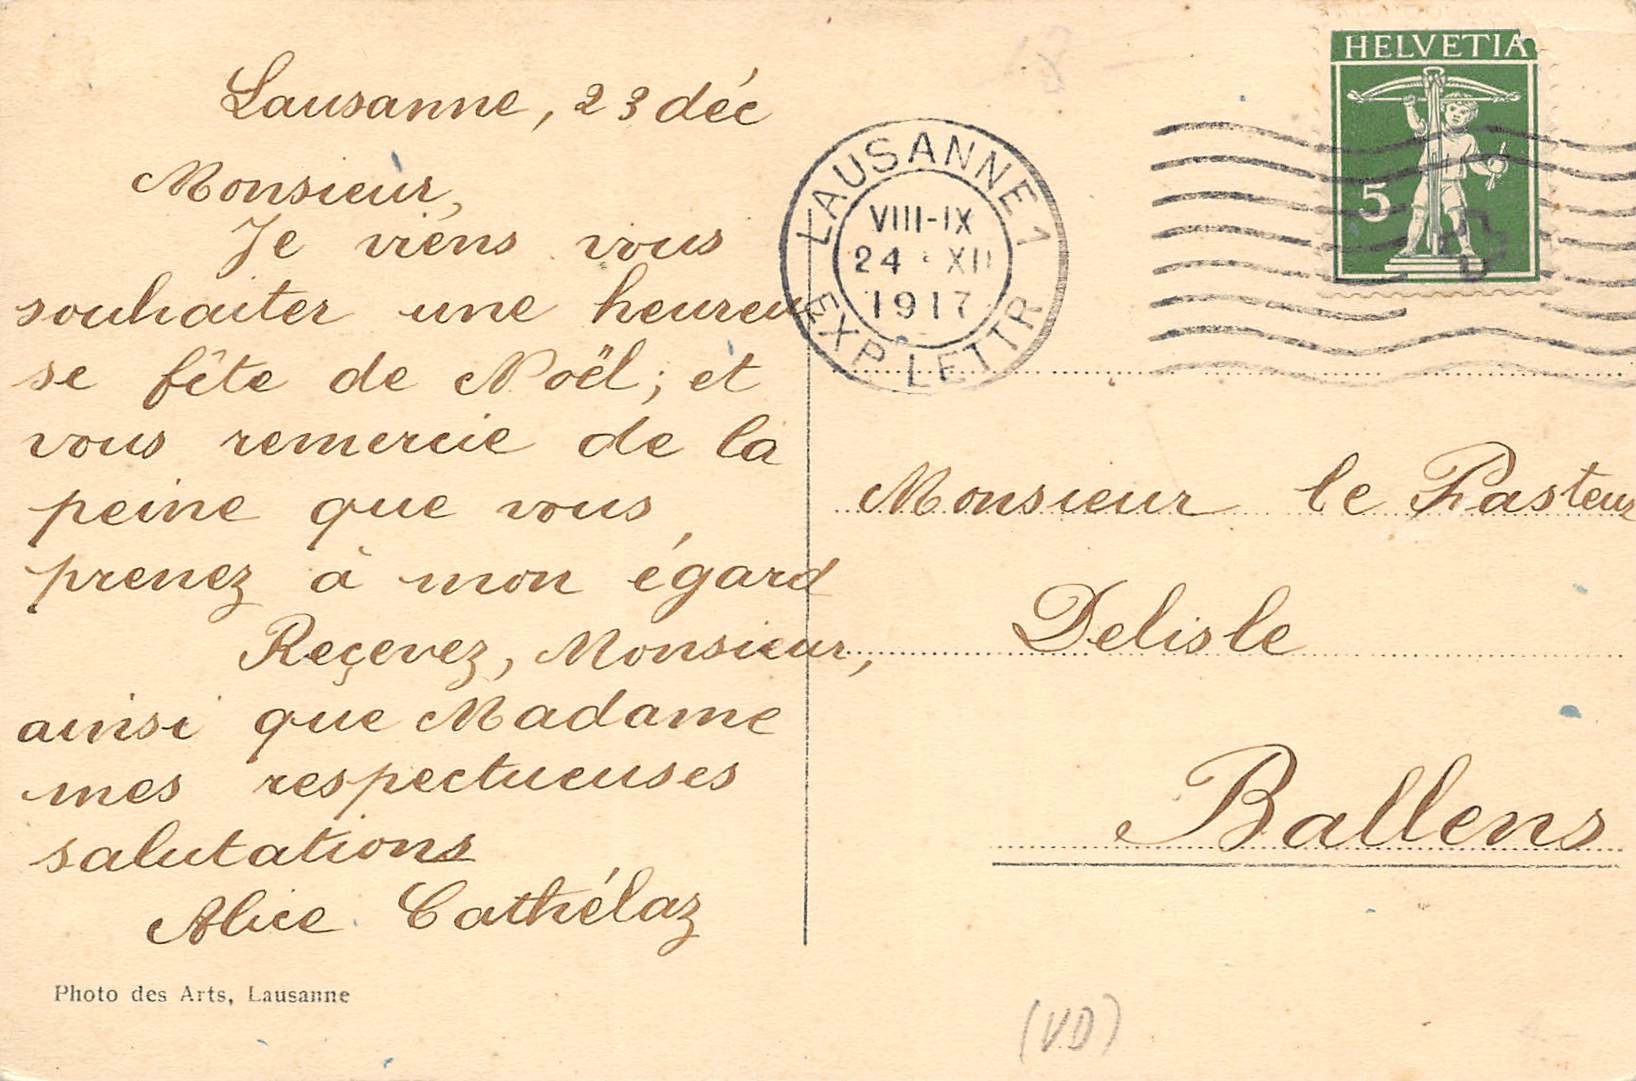 Lausanne, 23 déc
Monsieur,
Je viens vous
souhaiter une heureu
se fête de Noël; et
vous remercie de la
peine que vous
prenez à mon égard
Reçevez, Monsieur,
ainsi que Madame
mes respectueuses
salutations
Alice Cathélaz
Photo des Arts, Lausanne
LAUSANNE 1
VIII-IX
24 XII
1917
EXP. LETTR
HELVETIA
5
Monsieur le Pasteur
Delisle
Ballens
(VD)